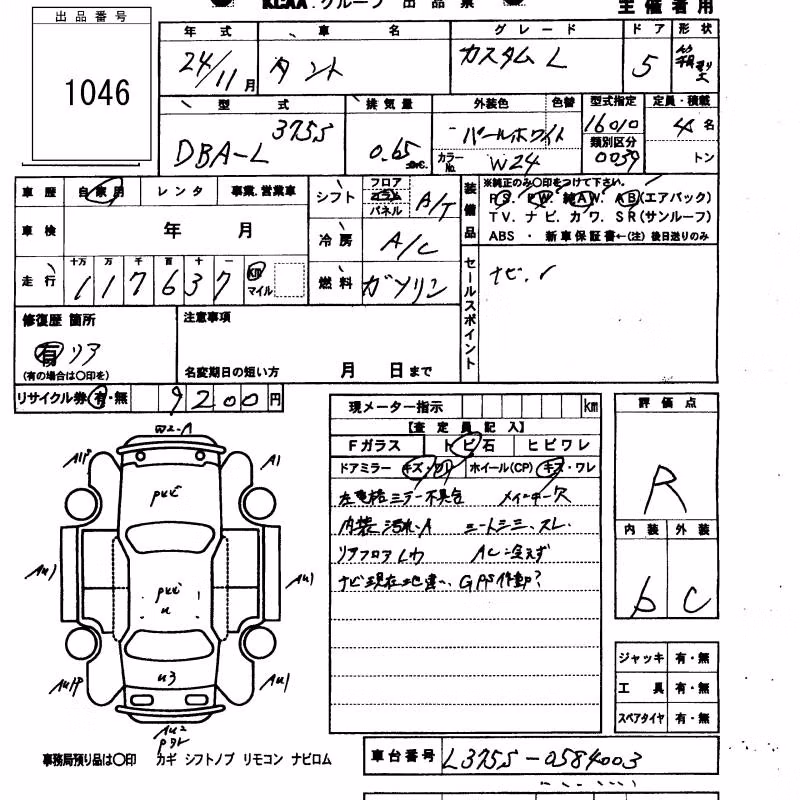 KCAA.グループ 出品票
主催者用
出品番号
1046
年式 車名 グレード ドア 形状
24/11月 タント カスタム L 5
型式 排気量 外装色 色替 型式指定 定員・積載
DBA-L 375S 0.65 パールホワイト 16010 4名
類別区分
カラーNo. W24 0039 トン
車歴 自家用 レンタ 事業.営業車
シフト フロア コラム パネル A/T
装備品 ※純正のみ○印をつけて下さい。
P.S. P.W. 純AW. AB(エアバック)
TV. ナビ. カワ. SR(サンルーフ)
ABS ・ 新車保証書←(注) 後日送りのみ
車検 年 月
冷房 A/C
走行 十万 万 千 百 十 一
117637 km マイル
燃料 ガソリン
セールスポイント ナビ.
修復歴 箇所
有 リア
(有の場合は○印を)
注意事項
名変期日の短い方 月 日まで
リサイクル券 有・無 9200円
現メーター指示 km
【査定員記入】
Fガラス トビ石 ヒビワレ
ドアミラー キズ・ワレ ホイール(CP) キズ・ワレ
左電格ミラー不具合
内装 汚れ.A シートシミ、スレ.
リアフロア
ナビ現在地違い、GPS作動?
評価点
R
内装 外装
b C
A1
AU1
AU1
U3
AU1
ジャッキ 有・無
工具 有・無
スペアタイヤ 有・無
事務局預り品は○印 カギ シフトノブ リモコン ナビロム
車台番号 L375S-0584003